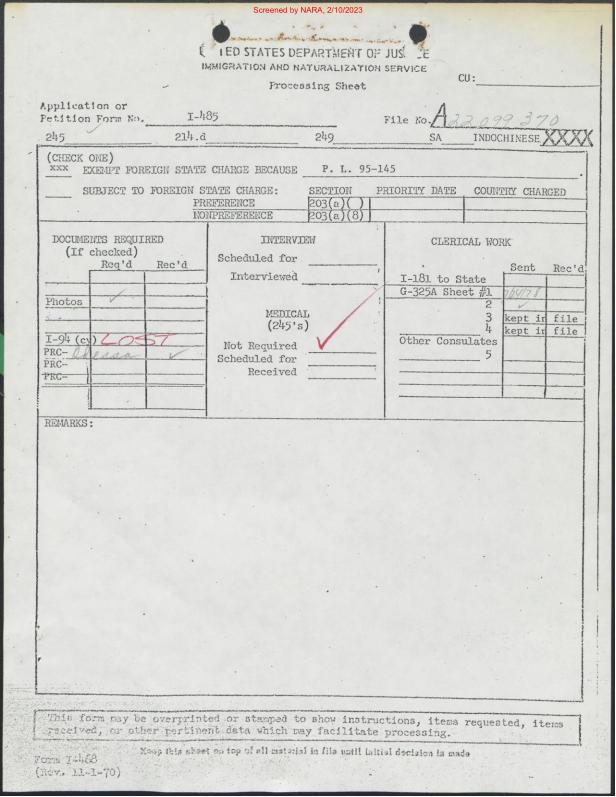 Screened by NARA, 2/10/2023
UNITED STATES DEPARTMENT OF JUSTICE
IMMIGRATION AND NATURALIZATION SERVICE
Processing Sheet
CU:
Application or
Petition Form No. I-485
File No. A22 099 370
245 214.d 249 SA INDOCHINESE XXXX
(CHECK ONE)
xxx EXEMPT FOREIGN STATE CHARGE BECAUSE P. L. 95-145
SUBJECT TO FOREIGN STATE CHARGE: SECTION PRIORITY DATE COUNTRY CHARGED
PREFERENCE 203(a)( )
NONPREFERENCE 203(a)(8)
DOCUMENTS REQUIRED
(If checked)
Req'd Rec'd
Photos ✓
I-94 (cy) LOST
PRC- ✓
PRC-
PRC-
INTERVIEW
Scheduled for
Interviewed
MEDICAL
(245's)
Not Required ✓
Scheduled for
Received
CLERICAL WORK
Sent Rec'd
I-181 to State
G-325A Sheet #1
2 ✓
3 kept in file
4 kept in file
Other Consulates
5
REMARKS:
This form may be overprinted or stamped to show instructions, items requested, items
received, or other pertinent data which may facilitate processing.
Keep this sheet on top of all material in file until initial decision is made
Form I-468
(Rev. 11-1-70)